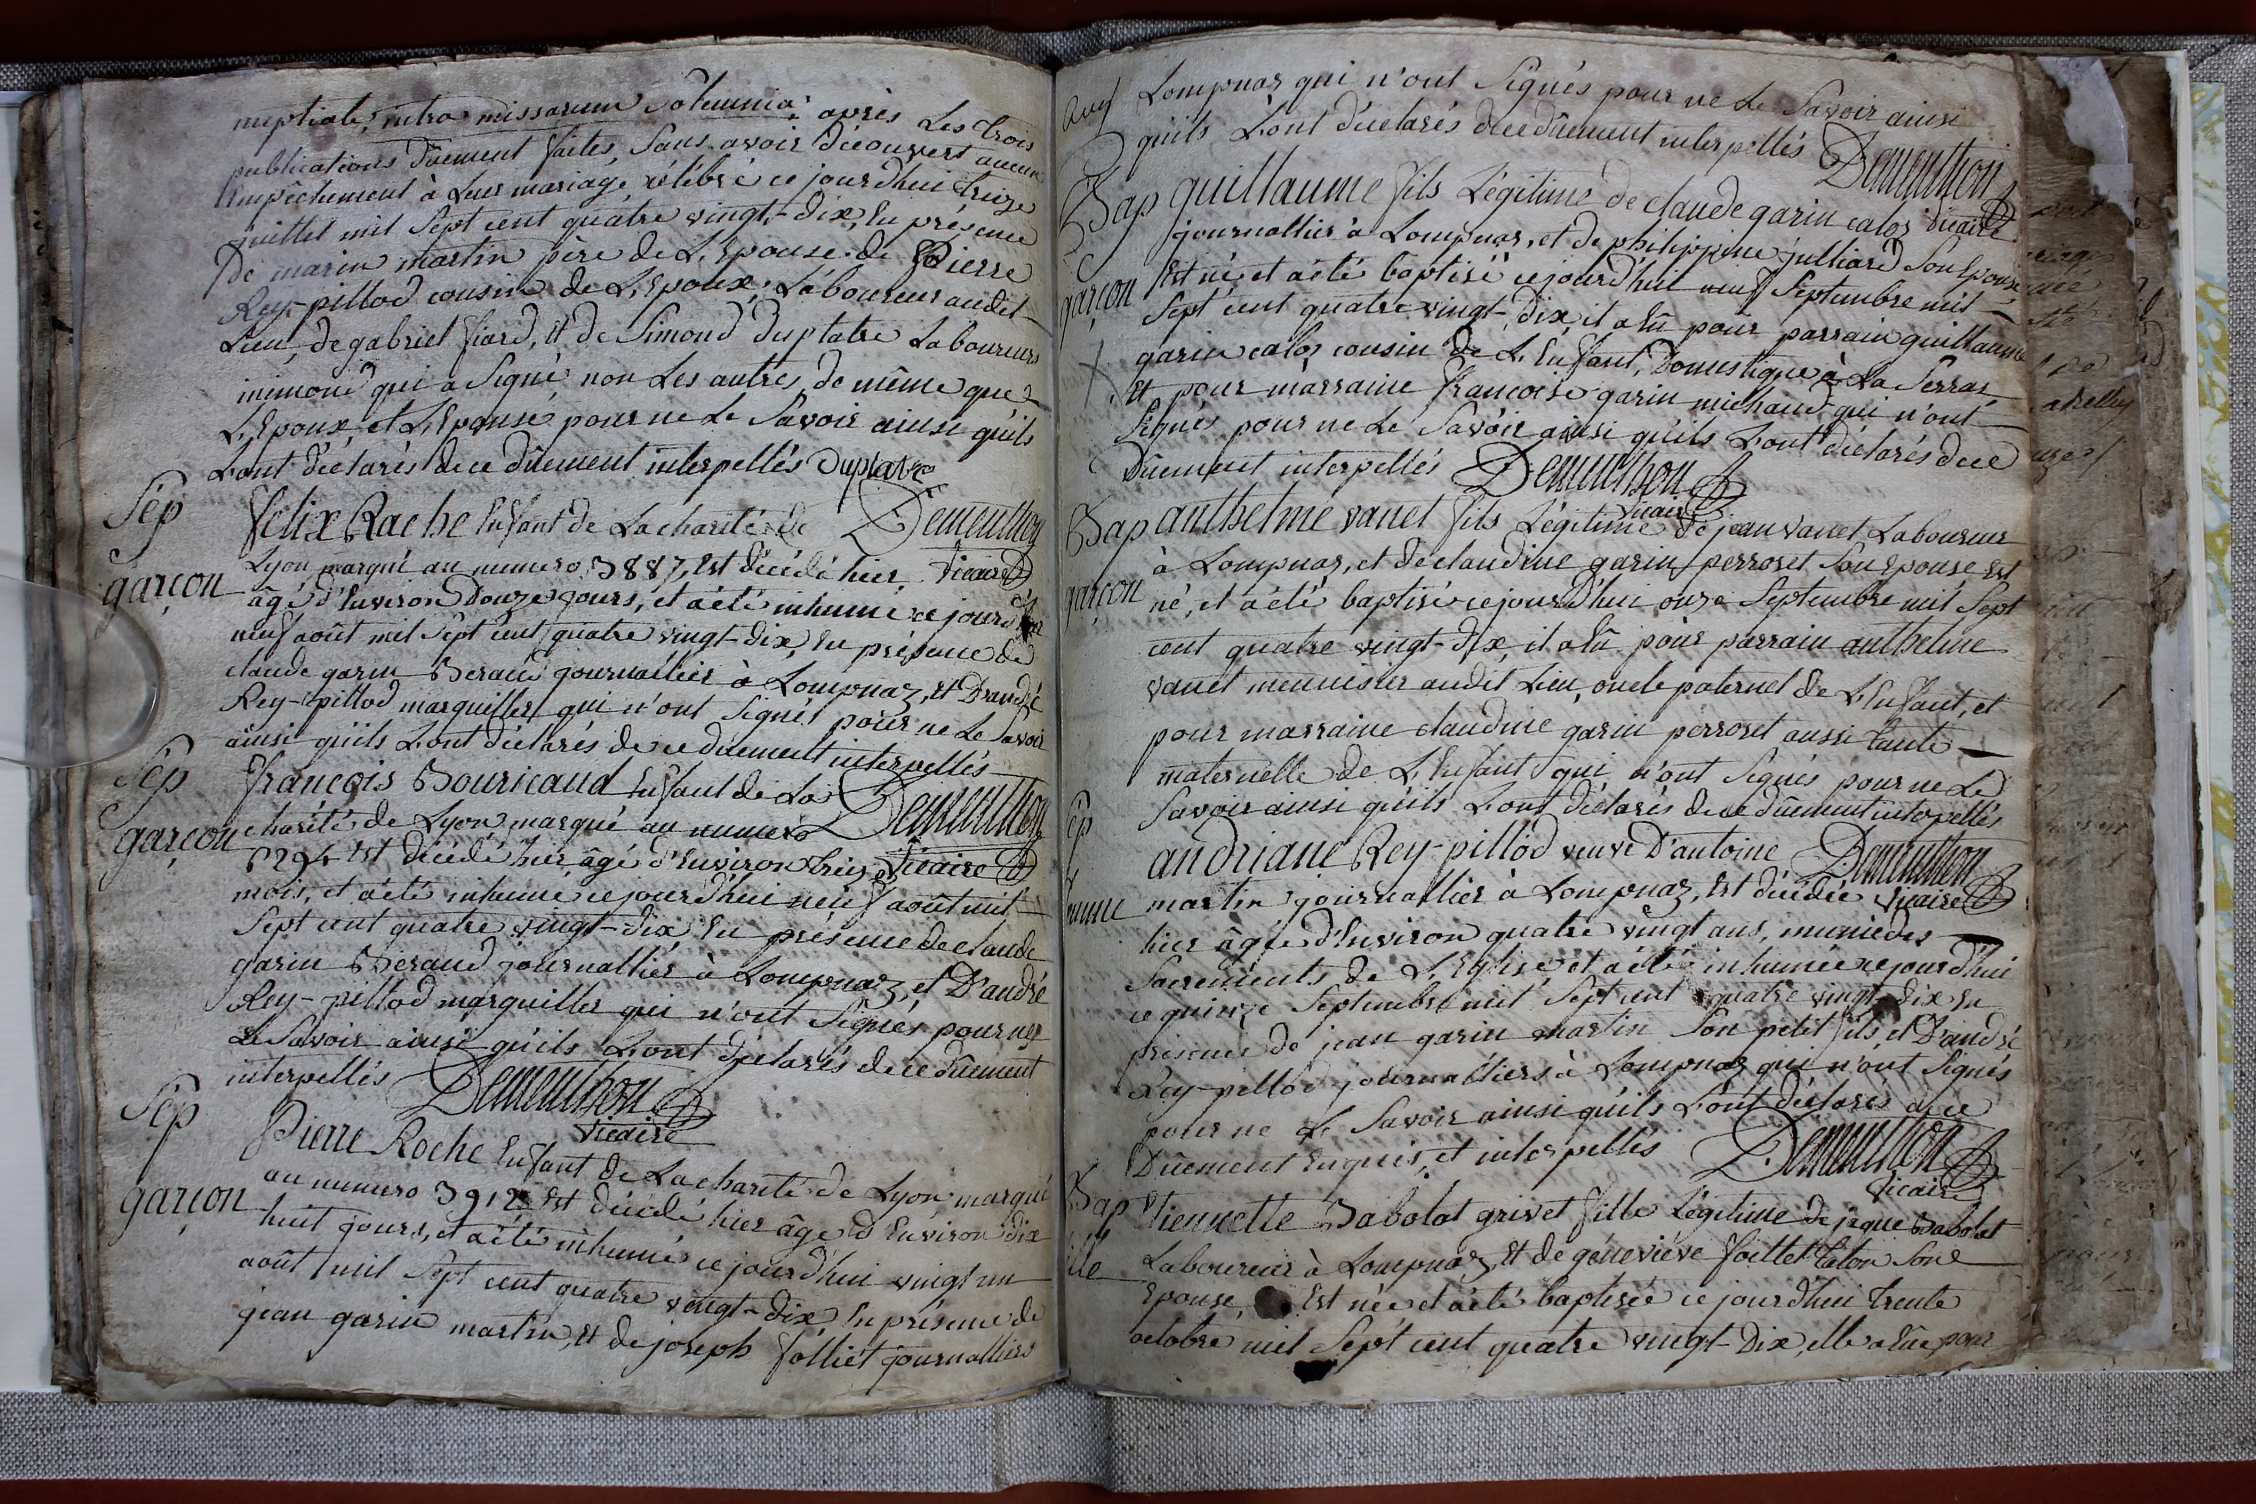 nuptiale, intra missarum solemnia: après Les trois
publications dûement faites, Sans avoir découvert aucun
Empêchement à Leur mariage célébré ce jourdhui treize
juillet mil Sept cent quâtre vingt-dix, En présence
De marin martin père de L'Epouse de Pierre
Rey-pillod cousin de L'Epoux, Laboureurs audit
Lieu, de gabriel fiard, et de Simond Duplatre Laboureurs
inimond qui a Signé non Les autres, de même que
L'Epoux, et L'Epouse pour ne Le Savoir ainsi qu'ils
L'ont déclarés de ce dûement interpellés Duplatre
Sep felix Rache Enfant de La charité de Dementhon
garçon Lyon marqué au numero 3887, Est décédé hier Vicaire
âgé d'Environ Douze jours, et a été inhumé ce jourd'hui
neuf août mil Sept cent quatre vingt-dix, En présence de
claude garin Beraud journallier à Lompnaz, et D'andré
Rey-pillod marguiller qui n'ont Signés pour ne Le Savoir
ainsi qu'ils L'ont déclarés de ce dûement interpellés
Sep françois Bouricaud Enfant de La Dementhon
garçon charité de Lyon marqué au numero
6294 Est décédé hier âgé d'Environ treize Vicaire
mois, et a été inhumé ce jourd'hui neuf août mil
Sept cent quatre vingt-dix En présence de claude
garin Beraud journallier à Lompnaz, et D'andré
Rey-pillod marguiller qui n'ont Signés pour ne
Le Savoir ainsi qu'ils L'ont déclarés de ce dûement
interpellés Dementhon
Vicaire
Sep Pierre Roche Enfant de La charité de Lyon marqué
garçon au numero 3912 Est décédé hier âgé d'Environ dix
huit jours, et a été inhumé ce jourd'hui vingt un
août mil Sept cent quatre vingt-dix En présence de
jean garin martin, et de joseph folliet journalliers
Lompnaz qui n'ont Signés pour ne Le Savoir ainsi
qu'ils L'ont déclarés de ce dûement interpellés Dementhon
Vicaire
Bap guillaume fils Légitime de claude garin caloz
journallier à Lompnaz, et de philippine julliard Son Epouse
garçon Est né, et a été baptisé ce jourd'hui neuf Septembre mil
Sept cent quatre vingt-dix, il a Eû pour parrain guillaume
garin caloz cousin de L'Enfant, Domestique à La Serraz
et pour marraine françoise garin michaud qui n'ont
Signés pour ne Le Savoir ainsi qu'ils L'ont déclarés de ce
Dûement interpellés Dementhon
Vicaire
Bap anthelme vanet fils Légitime de jean vanet Laboureur
à Lompnaz, et de claudine garin perroset Son Epouse Est
garçon né, et a été baptisé ce jourd'hui onze Septembre mil Sept
cent quatre vingt-dix, il a Eû pour parrain anthelme
vanet menuisier audit Lieu, oncle paternel de L'Enfant, et
pour marraine claudine garin perroset aussi tante
maternelle de L'Enfant qui n'ont Signés pour ne Le
Savoir ainsi qu'ils L'ont déclarés de ce dûement interpellés
Sep andriane Rey-pillod veuve D'antoine Dementhon
martin journallier à Lompnaz, Est décédée Vicaire
hier âgée d'Environ quatre vingt ans, munie des
Sacrements de L'Eglise, et a été inhumée ce jourd'hui
ce quinze Septembre mil Sept cent quatre vingt-dix En
présence de jean garin martin Son petit fils, et D'andré
Rey-pillod journalliers à Lompnaz qui n'ont Signés
pour ne Le Savoir ainsi qu'ils L'ont déclarés de ce
Dûement Enquis, et interpellés Dementhon
Vicaire
Bap Etiennette Babolat grivet fille Légitime de jaque Babolat
Laboureur à Lompnaz, et de géneviéve foillet talon Son
Epouse, Est née et a été baptisée ce jourd'hui trente
octobre mil Sept cent quatre vingt-Dix, elle a Eûe pour